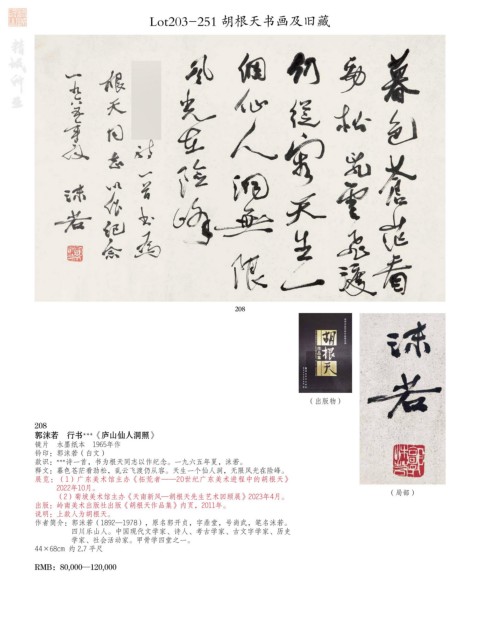 Lot203-251 胡根天书画及旧藏
精诚所至
暮色苍茫看
劲松乱云飞渡
仍从容天生一
个仙人洞无限
风光在险峰
诗一首书为
根天同志以作纪念
一九六五年夏
沫若
208
胡根天
(出版物)
沫若
(局部)
208
郭沫若 行书***《庐山仙人洞照》
镜片 水墨纸本 1965年作
钤印:郭沫若(白文)
款识:***诗一首,书为根天同志以作纪念。一九六五年夏,沫若。
释文:暮色苍茫看劲松,乱云飞渡仍从容。天生一个仙人洞,无限风光在险峰。
展览:(1)广东美术馆主办《拓荒者——20世纪广东美术进程中的胡根天》
2022年10月。
(2)粤陕美术馆主办《天南新风—胡根天先生艺术回顾展》2023年4月。
出版:岭南美术出版社出版《胡根天作品集》内页,2011年。
说明:上款人为胡根天。
作者简介:郭沫若(1892—1978),原名郭开贞,字鼎堂,号尚武,笔名沫若。
四川乐山人。中国现代文学家、诗人、考古学家、古文字学家、历史
学家、社会活动家。甲骨学四堂之一。
44×68cm 约2.7平尺
RMB: 80,000—120,000